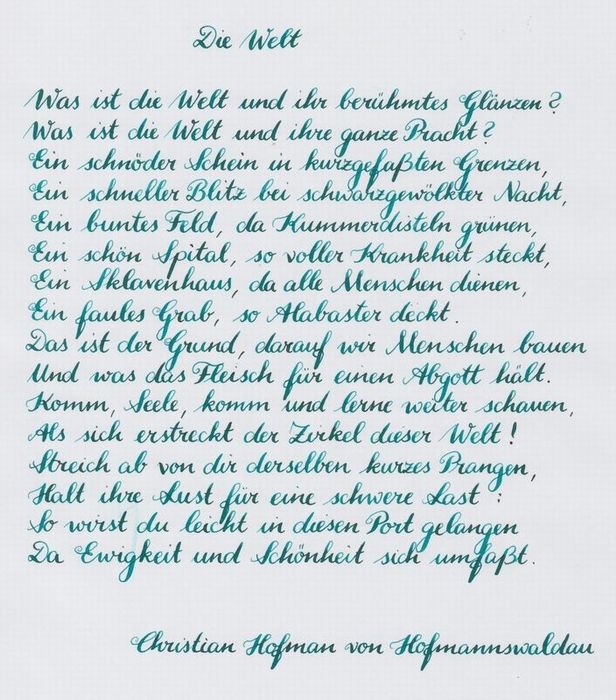 Die Welt
Was ist die Welt und ihr berühmtes Glänzen?
Was ist die Welt und ihre ganze Pracht?
Ein schnöder Schein in kurzgefaßten Grenzen,
Ein schneller Blitz bei schwarzgewölkter Nacht,
Ein buntes Feld, da Kummerdisteln grünen,
Ein schön Spital, so voller Krankheit steckt,
Ein Sklavenhaus, da alle Menschen dienen,
Ein faules Grab, so Alabaster deckt.
Das ist der Grund, darauf wir Menschen bauen
Und was das Fleisch für einen Abgott hält.
Komm, Seele, komm und lerne weiter schauen,
Als sich erstreckt der Zirkel dieser Welt!
Streich ab von dir derselben kurzes Prangen,
Halt ihre Lust für eine schwere Last:
So wirst du leicht in diesen Port gelangen
Da Ewigkeit und Schönheit sich umfaßt.
Christian Hofman von Hofmannswaldau